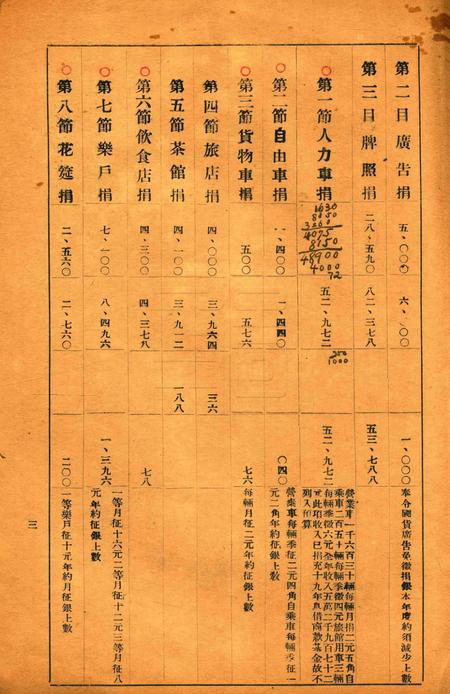 第二目廣告捐 五、〇〇〇 六、〇〇〇 一、〇〇〇 奉令國貨廣告免徵捐銀本年度約須減少上數
第三目牌照捐 二八、五九〇 八二、三七八 五三、七八八
第一節人力車捐 五二、九七二 五二、九七二 營業車一千六百三十輛每輛月捐二元五角自
乘車二百五十輛每輛季徵四元旅館用車三輛
每輛季徵六元全年收入五萬二千九百七十二
元此項收入已指充十九年息借商款基金故不
列入預算
1630
8150
3260
4075
8150
48900
4000
72
250
1000
第二節自由車捐 一、四〇〇 一、四四〇 〇四〇 營業車每輛季征二元四角自乘車每輛季征一
元二角年約征銀上數
第三節貨物車捐 五〇〇 五七六 七六 每輛月征二元年約征銀上數
第四節旅店捐 四、〇〇〇 三、九六四 三六
第五節茶館捐 四、一〇〇 三、九一二 一八八
第六節飲食店捐 四、三〇〇 四、三七八 七八
第七節樂戶捐 七、一〇〇 八、四九六 一、三九六 一等月征十六元二等月征十二元三等月征八
元年約征銀上數
第八節花筵捐 二、五六〇 二、七六〇 二〇〇 一等樂戶征十元年約月征銀上數
三